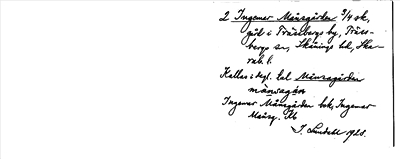 2 Ingemar Månsgården 3/4 sk,
gård i Trässbergs by, Träss-
bergs sn, Skånings hd, Ska-
rab. l.
Kallas i dagl. tal Månsagården
månsagán
Ingemar Månsgården bok, Ingemar
Månsg. Ub
I. Lundahl 1925.